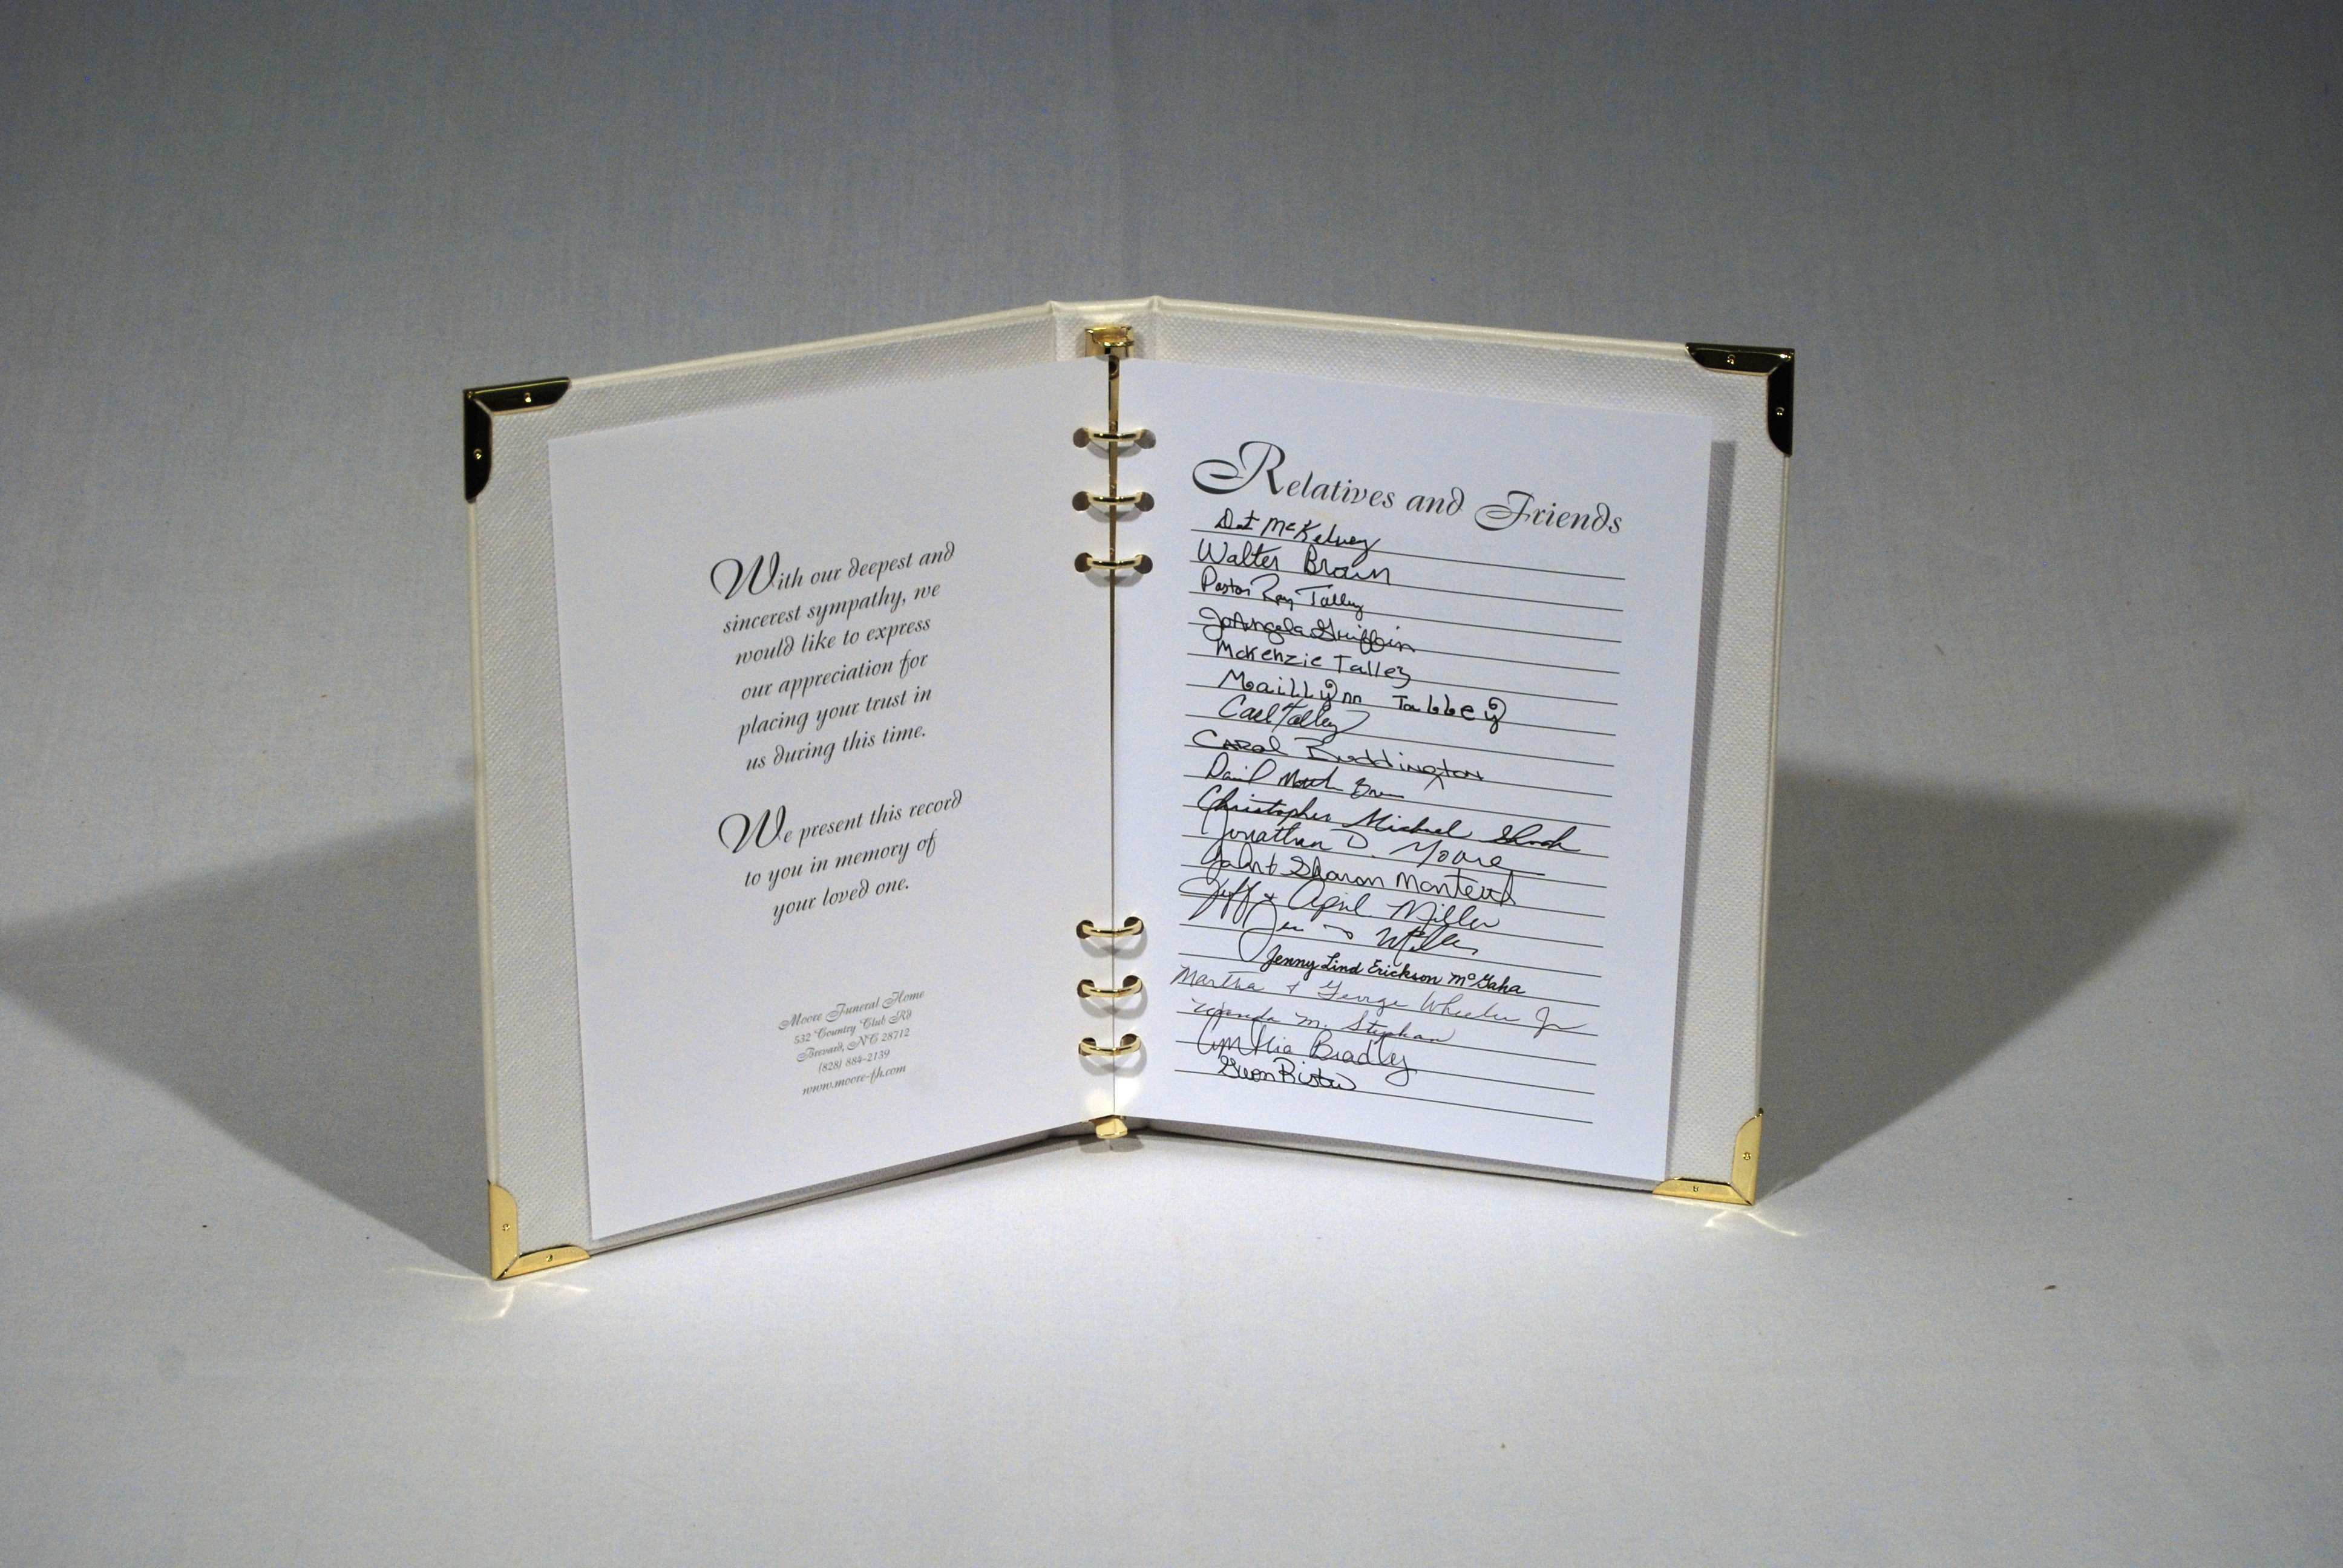 With our deepest and
sincerest sympathy, we
would like to express
our appreciation for
placing your trust in
us during this time.
We present this record
to you in memory of
your loved one.
Moore Funeral Home
532 Country Club Rd
Brevard, NC 28712
(828) 884-2139
www.moore-fh.com
Relatives and Friends
Dot McKelvey
Walter Brown
Pastor Ray Talley
JoAngela Griffin
McKenzie Talley
Maillynn Talley
Carl Talley
Carol Buddington
David
Christopher Michael Shook
Jonathan D. Moore
Sharon Monteith
Jeff & April Miller
Miller
Jenny Lind Erickson McGaha
Martha & George Wheeler Jr
Wanda M. Stephan
Cynthia Bradley